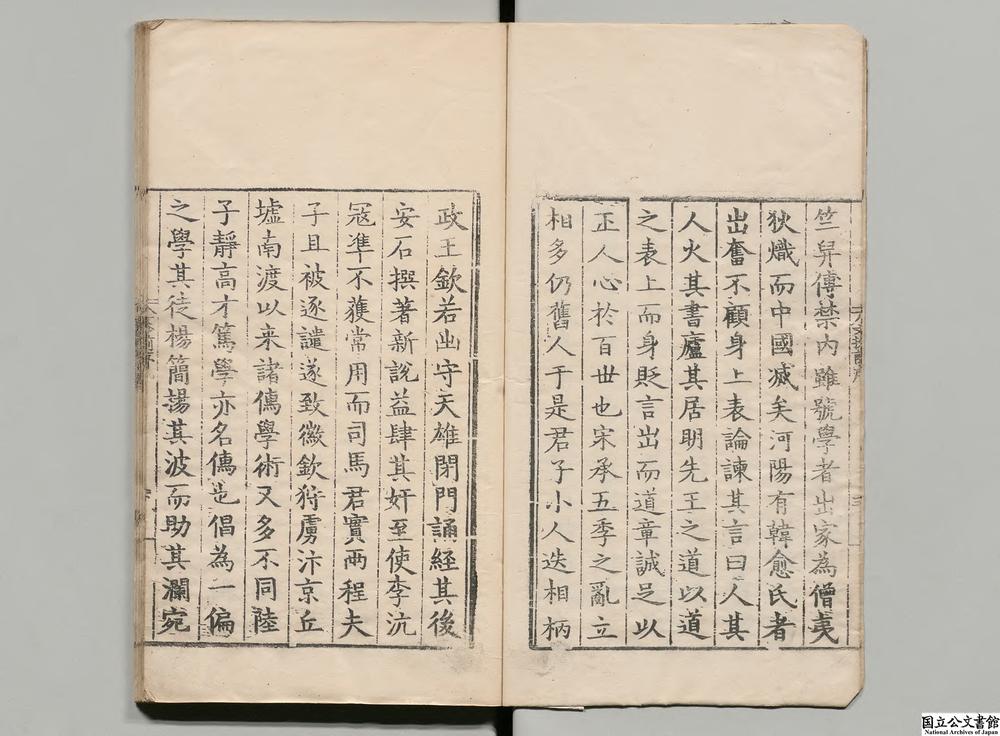 竺舁傳禁内雖號學者出家為僧夷
狄熾而中國㓕矣河陽有韓愈氏者
出奮不顧身上表論諫其言曰人其
人火其書廬其居明先王之道以道
之表上而身貶言出而道章誠足以
正人心於百世也宋承五季之亂立
相多仍舊人于是君子小人迭相柄
政王欽若出守天雄閉門誦經其後
安石撰著新說益肆其奸至使李沆
冦準不獲常用而司馬君實兩程夫
子且被逐譴遂致徽欽狩虜汴京丘
墟南渡以来諸儒學術又多不同陸
子靜高才篤學亦名儒也倡為一偏
之學其徒楊簡揚其波而助其瀾宛
国立公文書館
National Archives of Japan